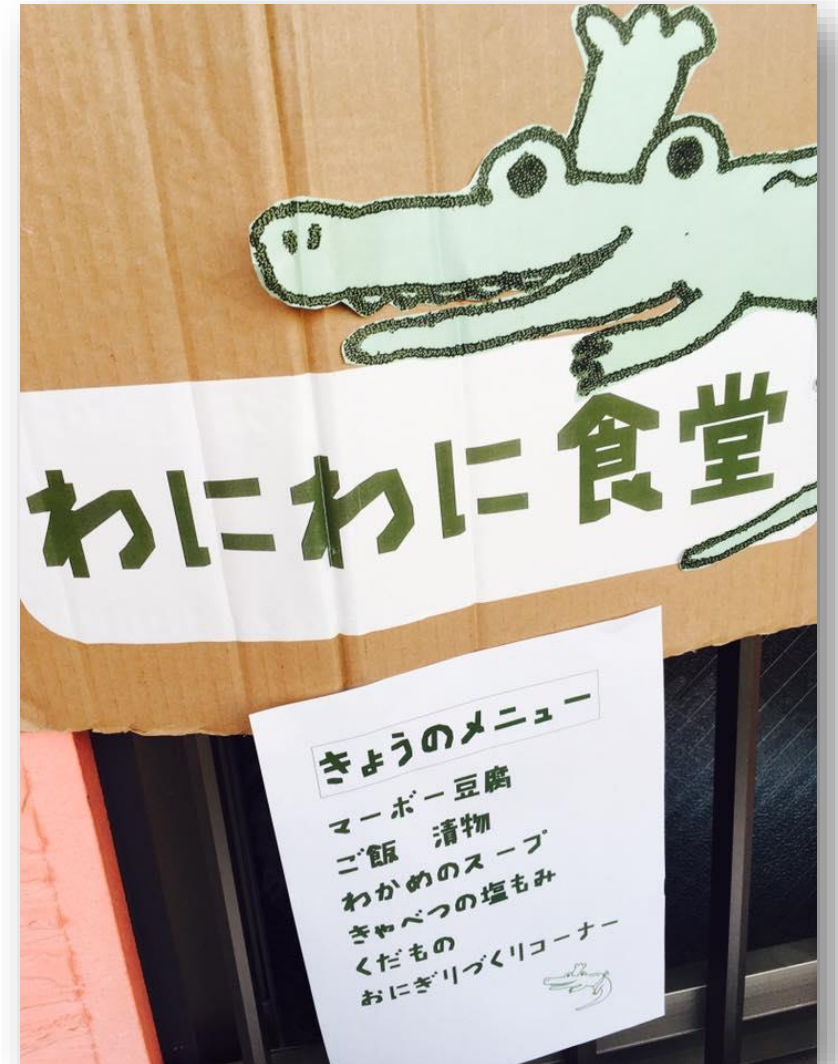 わにわに食堂
きょうのメニュー
マーボー豆腐
ご飯　漬物
わかめのスープ
きゃべつの塩もみ
くだもの
おにぎりづくりコーナー